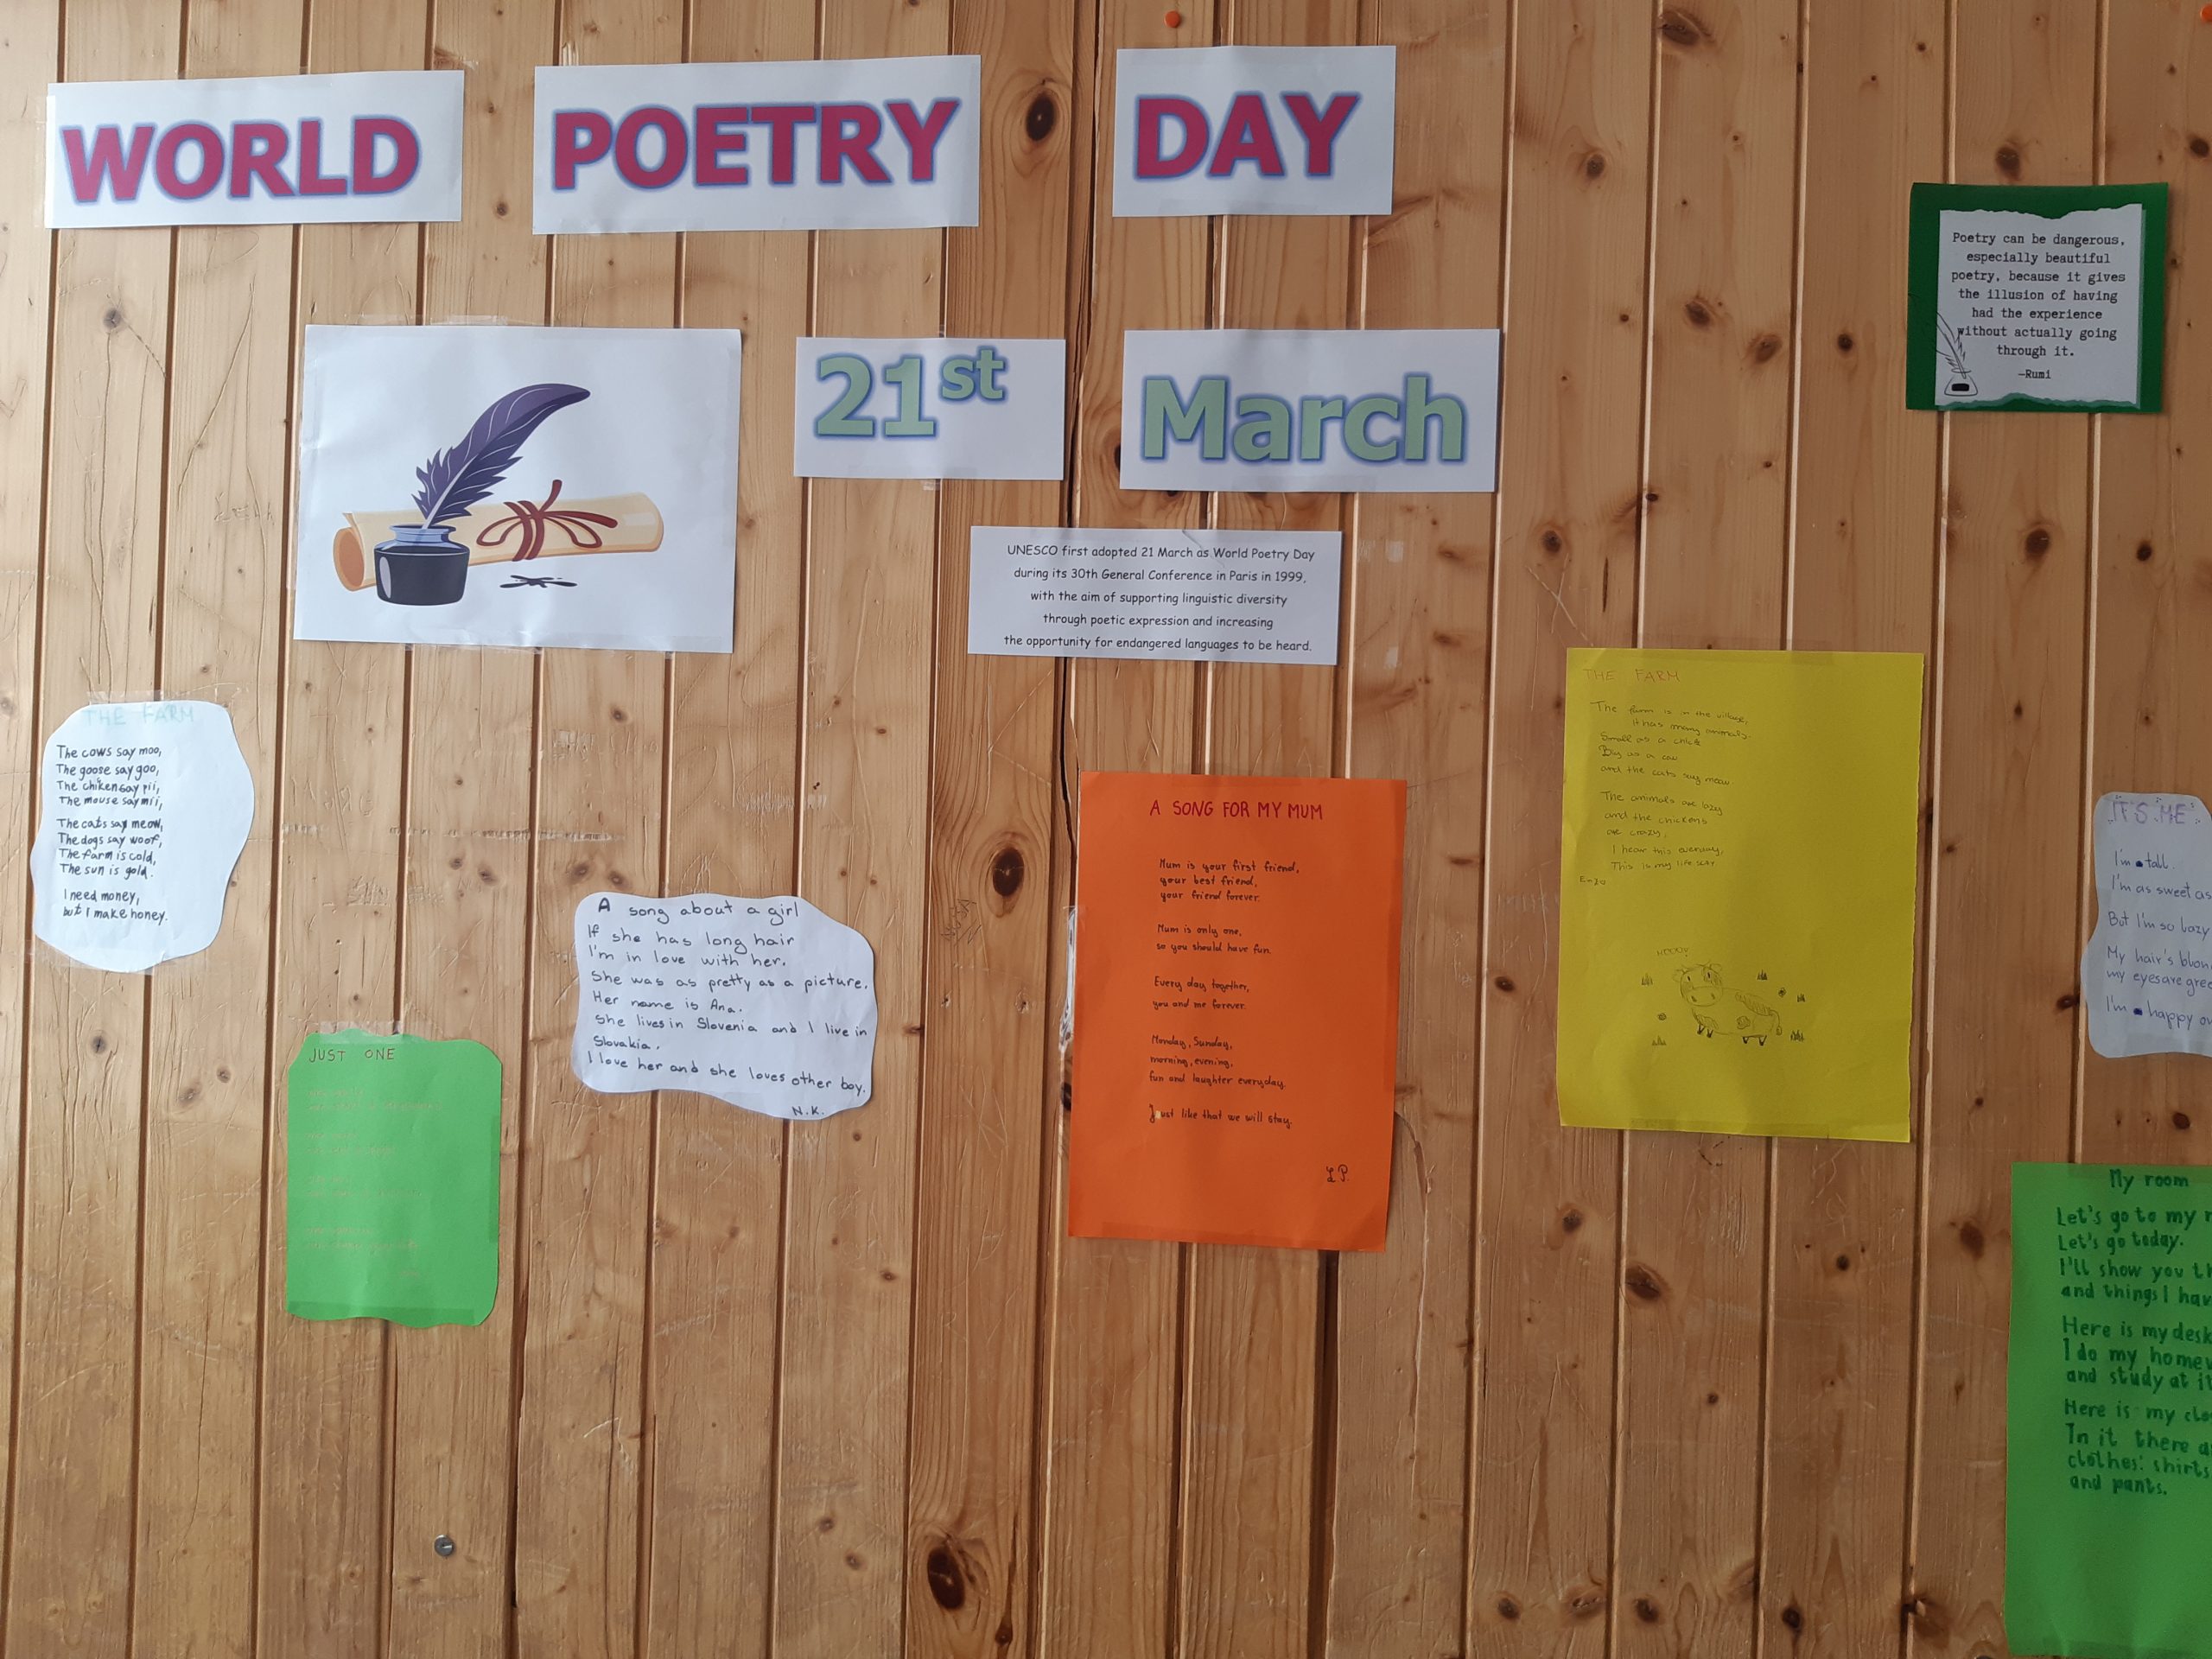 WORLD POETRY DAY
21st March
UNESCO first adopted 21 March as World Poetry Day
during its 30th General Conference in Paris in 1999,
with the aim of supporting linguistic diversity
through poetic expression and increasing
the opportunity for endangered languages to be heard.
Poetry can be dangerous,
especially beautiful
poetry, because it gives
the illusion of having
had the experience
without actually going
through it.
—Rumi
THE FARM
The cows say moo,
The goose say goo,
The chiken say pii,
The mouse say mii,
The cats say meow,
The dogs say woof,
The farm is cold,
The sun is gold.
I need money,
but I make honey.
JUST ONE
A song about a girl
If she has long hair
I'm in love with her.
She was as pretty as a picture.
Her name is Ana.
She lives in Slovenia and I live in
Slovakia.
I love her and she loves other boy.
N.K.
A SONG FOR MY MUM
Mum is your first friend,
your best friend,
your friend forever.
Mum is only one,
so you should have fun.
Every day together,
you and me forever.
Monday, Sunday,
morning, evening,
fun and laughter everyday.
Just like that we will stay.
L.P.
THE FARM
The farm is in the village,
it has many animals.
Small as a chick
Big as a cow
and the cats say meow.
The animals are lazy
and the chickens
are crazy,
I hear this everyday,
This is my life
Enzo
IT'S ME
I'm tall.
I'm as sweet as
But I'm so lazy
My hair's
my eyes are
I'm happy
My room
Let's go to my
Let's go today.
I'll show you
and things I
Here is my desk
I do my
and study at
Here is my
In it there
clothes: shirts
and pants.